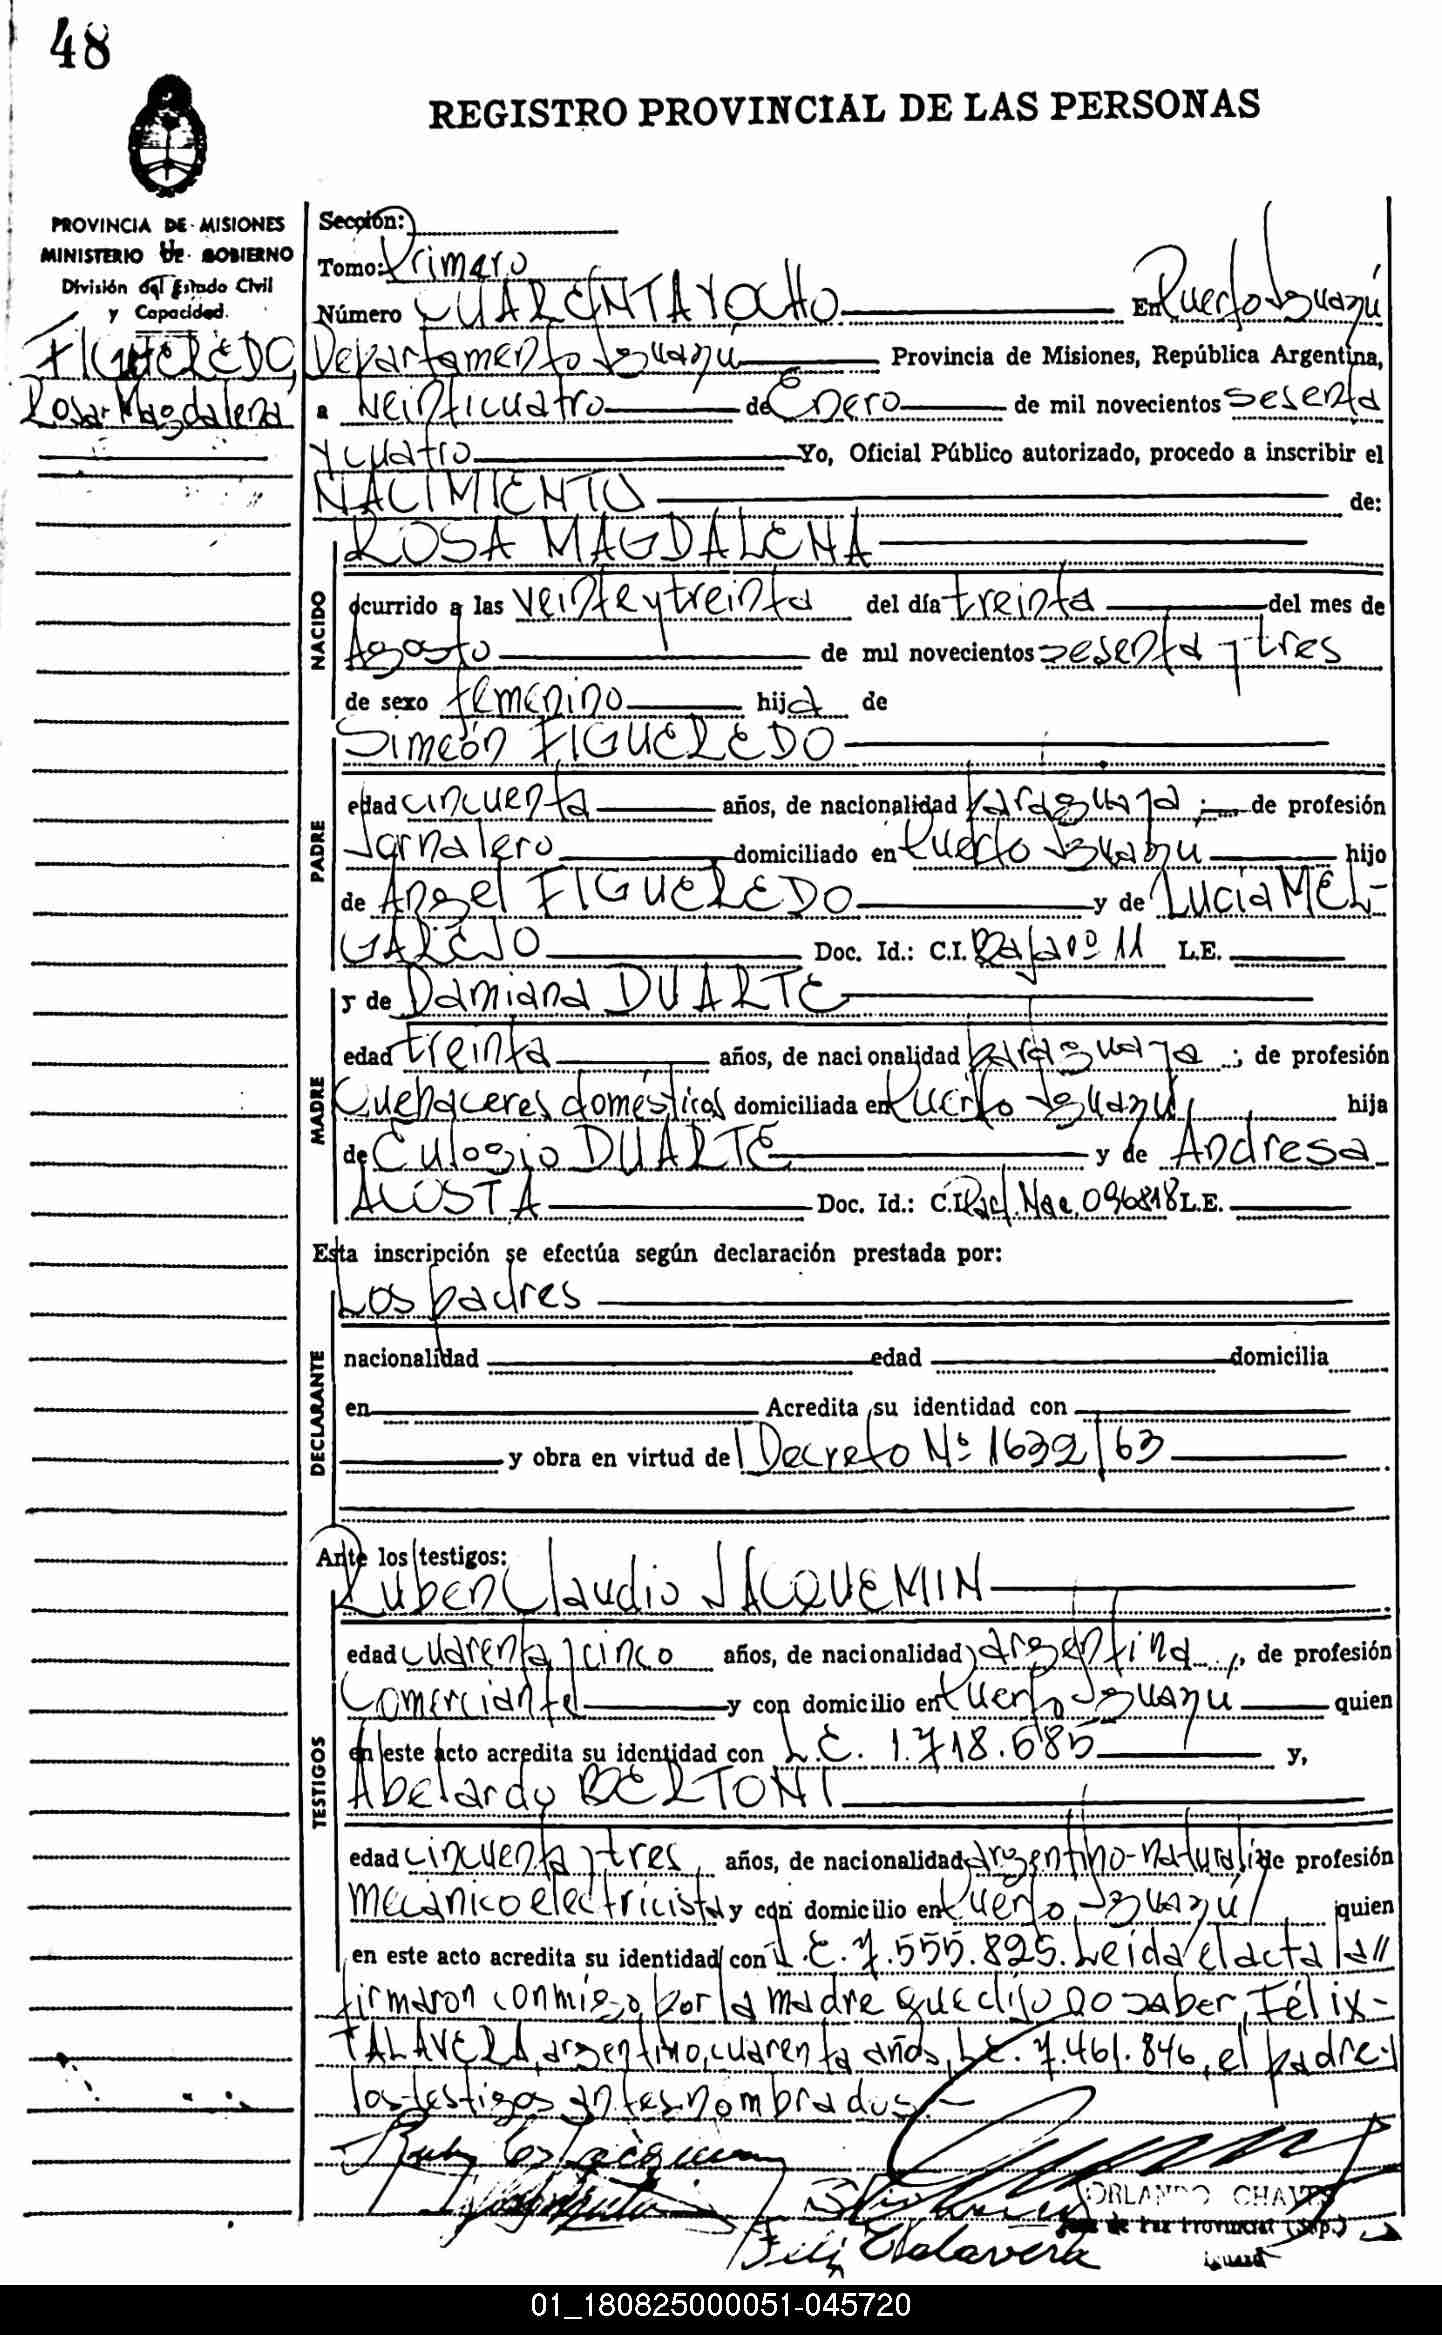 48
REGISTRO PROVINCIAL DE LAS PERSONAS
PROVINCIA DE MISIONES
MINISTERIO DE GOBIERNO
División del Estado Civil
y Capacidad.
FIGUEREDO,
Rosa Magdalena
Sección:
Tomo: Primero
Número CUARENTA Y OCHO En Puerto Iguazú
Departamento Iguazú Provincia de Misiones, República Argentina,
a Veinticuatro de Enero de mil novecientos sesenta
y cuatro Yo, Oficial Público autorizado, procedo a inscribir el
NACIMIENTO de:
ROSA MAGDALENA
NACIDO
ocurrido a las veinte y treinta del día treinta del mes de
Agosto de mil novecientos sesenta y tres
de sexo femenino hija de
Simeón FIGUEREDO
PADRE
edad cincuenta años, de nacionalidad paraguaya ; de profesión
Jornalero domiciliado en Puerto Iguazú hijo
de Angel FIGUEREDO y de Lucía MEL-
GAREJO Doc. Id.: C.I. L.E.
y de Damiana DUARTE
MADRE
edad treinta años, de nacionalidad paraguaya ; de profesión
Quehaceres domésticos domiciliada en Puerto Iguazú hija
de Eulogio DUARTE y de Andresa
ACOSTA Doc. Id.: C.I. L.E.
Esta inscripción se efectúa según declaración prestada por:
Los padres
DECLARANTE
nacionalidad edad domicilia
en Acredita su identidad con
y obra en virtud del Decreto Nº 1632/63
Ante los testigos:
Ruben Claudio JACQUEMIN
TESTIGOS
edad cuarenta y cinco años, de nacionalidad argentina, de profesión
Comerciante y con domicilio en Puerto Iguazú quien
en este acto acredita su identidad con L.E. 1.718.685 y,
Abelardo BERTONI
edad cincuenta y tres años, de nacionalidad argentino-naturaliz de profesión
mecánico electricista y con domicilio en Puerto Iguazú quien
en este acto acredita su identidad con L.E. 7.555.825. Leida el acta la//
firmaron conmigo, por la madre que dijo no saber, Félix-
TALAVERA, argentino, cuarenta años, L.E. 7.461.846, el padre y
los testigos antes nombrados.-
ORLANDO CHAVES
Juez de Paz Provincial (Sup.)
Felix Talavera
Iguazú
01_180825000051-045720